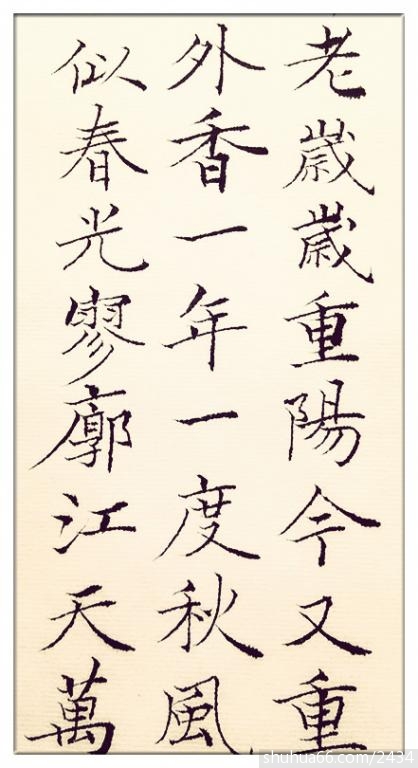 老歲歲重陽今又重
外香一年一度秋風
似春光廖廓江天萬
shuhua66.com/2434